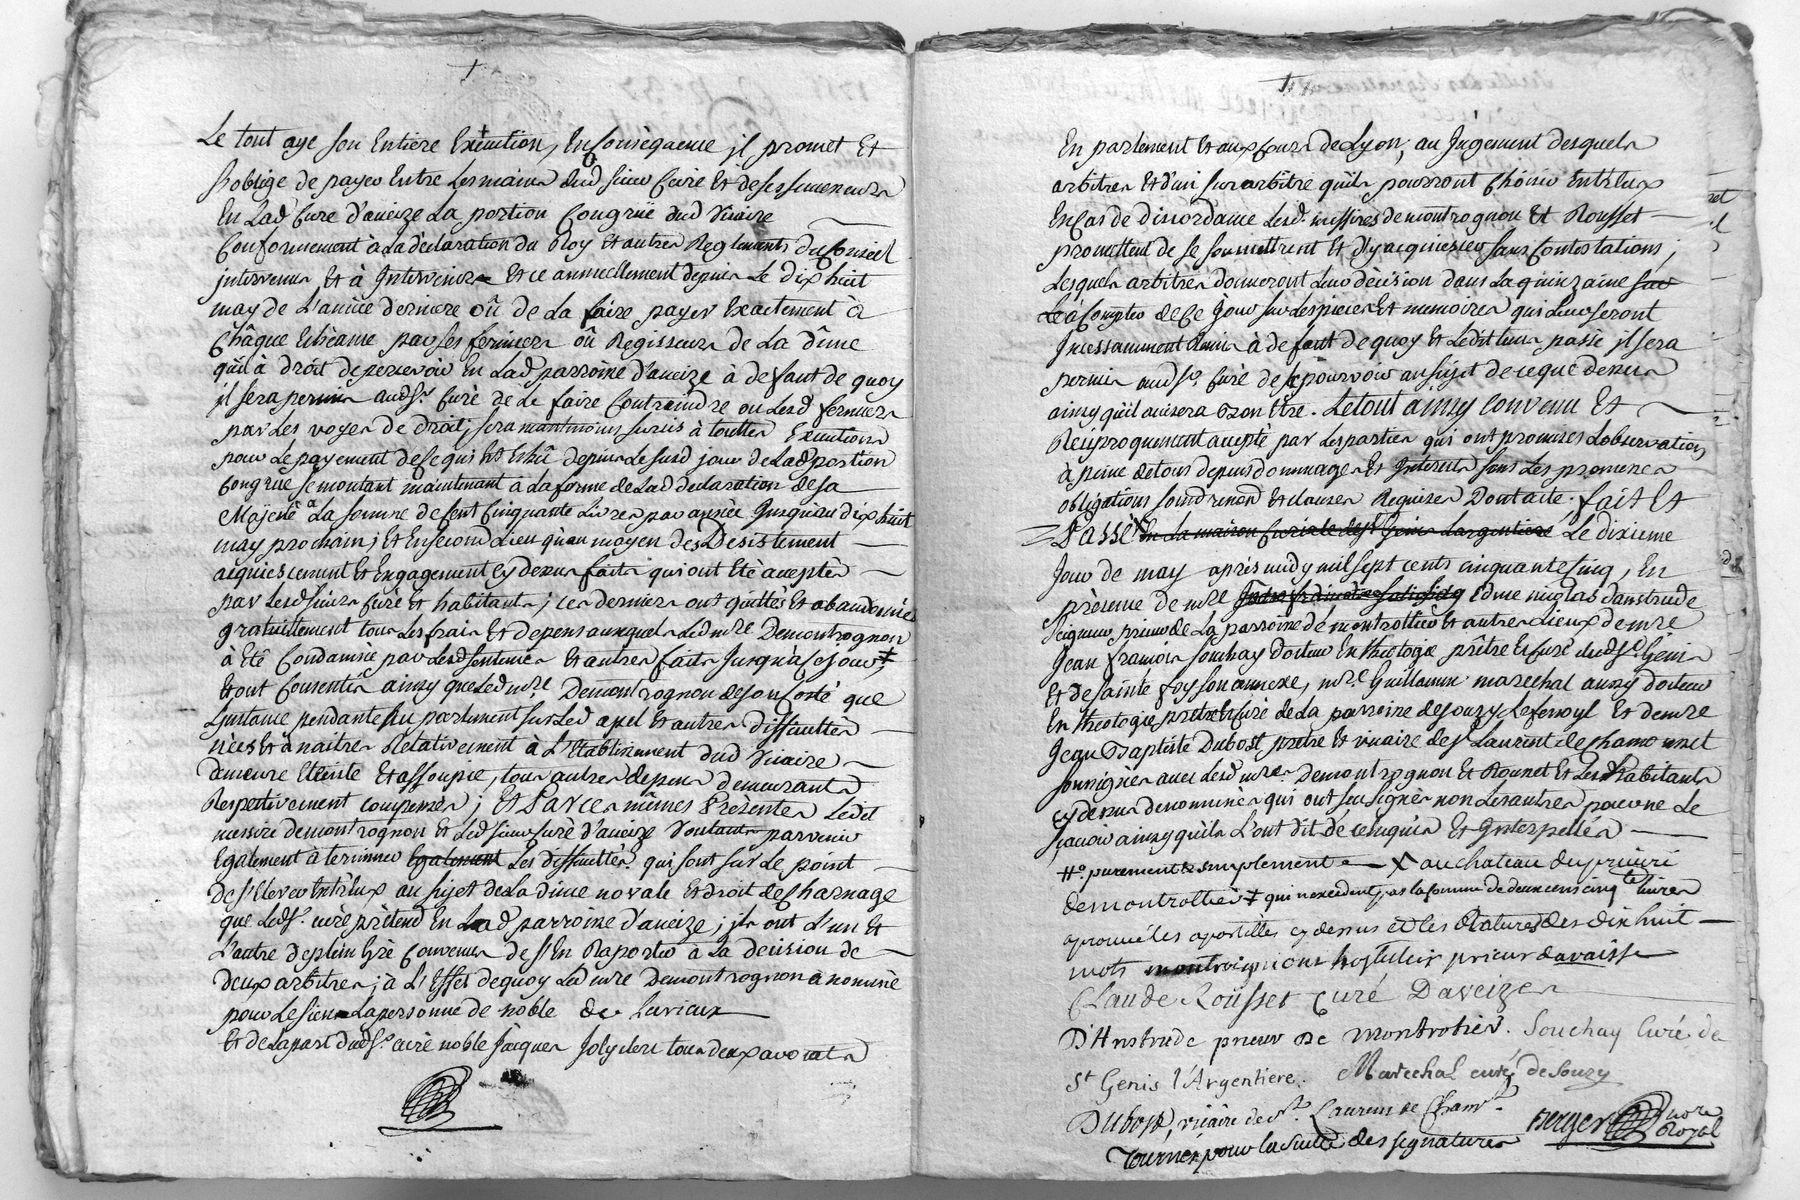 Le tout aye son Entiere Execution, En consequence jl promet Et
s'oblige de payer Entre Les mains dud sieur Curé Et de ses successeurs
En Lad Cure d'aveize La portion Congrüe dud vicaire
Conformement à La déclaration du Roy Et autres Reglements du Conseil
jntervenus Et à Intervenir Et ce annuellement depuis Le dix huit
may de L'année derniere oû de La faire payer Exactement à
Châque Echéance par ses fermiers oû Regisseurs de La dîme
qu'il à droit de percevoir En Lad parroisse d'aveize à defaut de quoy
jl sera permis aud Sr. Curé de Le faire Contraindre ou Lesd fermiers
par Les voyes de droit; sera neantmoins sursis à touttes Executions
pour Le payement de Ce qui Est Echû depuis Le susd jour de Lad portion
Congrüe se montant maintenant à La forme de Lad declaration de sa
Majesté à La somme de Cent Cinquante Livres par année Jusqu'au dix huit
may prochain; Et En second Lieu qu'au moyen des Désistement
acquiescement Et Engagement cy dessus faits qui ont Eté acceptés
par Lesd sieurs Curé Et habitants; ces derniers ont quittés Et abandonnés
gratuittement tous Les frais Et depens auxquels Led mre Demontrognon
à Eté Condamné par Lesd sentences Et autres faits Jusqu'à ce jour ‡
Et ont Consentis ainsy que Led mre. Demontrognon de son Costé que
L'instance pendante au parlement sur Led apel Et autres difficultés
nées Et à naitre Relativement à L'Etablissement dud vicaire
demeure Eteinte Et assoupie, tous autres depens demeurants
Respectivement compensés; Et Par ces mêmes Présentes Ledit
messire demontrognon Et Led sieur Curé d'aveize voulants parvenir
Egalement à terminer Egalement Les difficultés qui sont sur Le point
de s'Elever Entr'Eux au sujet de La dime novale Et droit de Charnage
que Led sr. curé prétend En Lad parroisse d'aveize; jls ont L'un Et
L'autre de plein gré Convenus de s'En Raporter à La décision de
deux arbitres; à L'Effet de quoy Led mre Demontrognon à nommé
pour Le sien La personne de noble de Lurieux
Et de La part dud Sr. curé noble Jacques Jolyclerc tous deux avocats
En parlement Et aux Cours de Lyon; au Jugement desquels
arbitres Et d'un surarbitre qu'ils pourront Choisir Entr'Eux
En Cas de discordance Lesd. messires demontrognon Et Rousset
promettent de se soumettrent Et d'y acquiescer sans Contestations;
Lesquels arbitres donneront Leur décision dans La quinzaine sur
Le à Compter de Ce jour sur Les pieces Et memoires qui Leur seront
Incessamment Remis à defaut de quoy Et Ledit tems passé jl sera
permis aud Sr. Curé de se pourvoir au sujet de ce que dessus
ainsy qu'il avisera Bon Etre. Le tout ainsy Convenu Et
Réciproquement accepté par Les parties qui ont promises L'observation
à peine de tous depens dommages Et Interets sous Les promesses
obligations soumissions Et clauses Requises Dont acte. fait Et
Passé X En La maison Curiale de St Genis Largentiere Le dixieme
Jour de may après midy mil sept cents cinquante cinq, En
présence de mre Edme niuglas danstrude
seigneur prieur de La parroisse de montrottier Et autres Lieux de mre
Jean francois souchay docteur En theologie prêtre Et Curé dud St. Genis
Et de sainte foy son annexe, mre. Guillaume marechal aussy docteur
En theologie prêtre Et curé de La parroisse de souzy Le fenoyl Et de mre
Jean Baptiste Dubost prêtre Et vicaire de St Laurent de Chamousset
soussignés avec Lesd mres Demontrognon Et Rousset Et Lesd habitants
cy dessus denommés qui ont sçeu signer non Les autres pour ne Le
sçavoir ainsy qu'ils L'ont dit de ce Enquis Et Interpellés
purement & simplement X au chateau du prieuré
de montrottier ‡ qui n'excedent pas la somme de deux cens cinq te livres
aprouvé les apostilles cy dessus et les Ratures des dix huit
mots montroignon hostelier prieur davaisse
Claude Rousset Curé Daveizes
D'Anstrude prieur De Montrotier. Souchay Curé de
St Genis l'Argentiere. Marechal curé de Souzy
Dubost, vicaire de St. Laurens de Cham.t
Berger nore Royal
Tournés pour la suitte des signatures